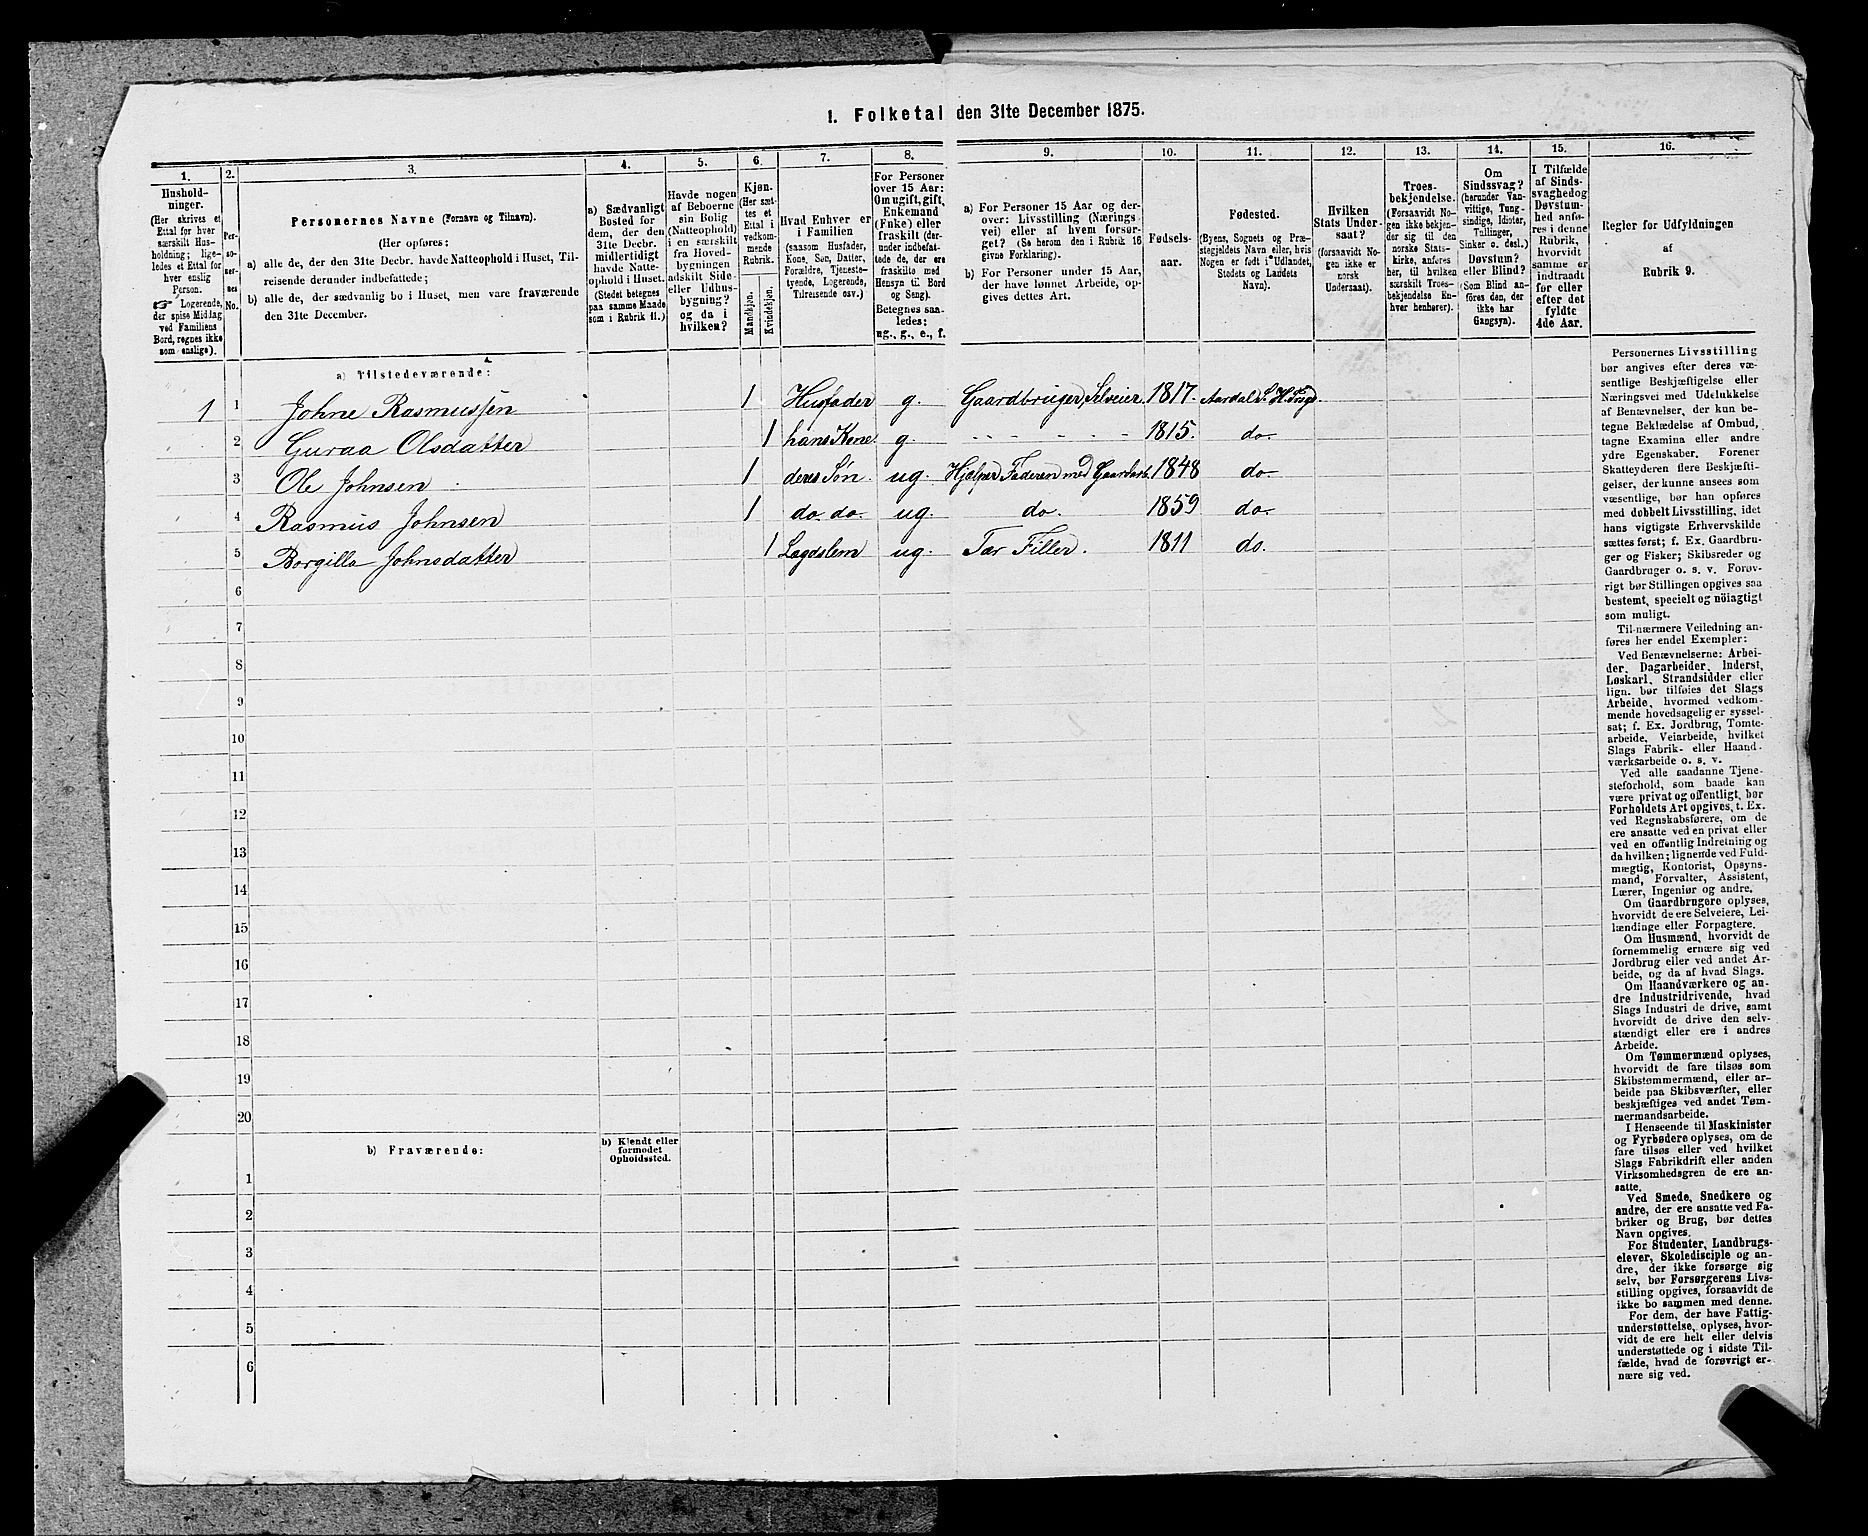 1. Folketal den 31te December 1875.
1. 2. 3. 4. 5. 6. 7. 8. 9. 10. 11. 12. 13. 14. 15. 16.
Hushold-
ninger.
(Her skrives et
Ettal for hver
særskilt Hus-
holdning; lige-
ledes et Ettal for
hver enslig
Person.
☞ Logerende,
der spise Middag
ved Familiens
Bord, regnes ikke
som enslige).
Per-
so-
ner-
nes
No.
Personernes Navne (Fornavn og Tilnavn).
(Her opføres:
a) alle de, der den 31te Decbr. havde Natteophold i Huset, Til-
reisende derunder indbefattede;
b) alle de, der sædvanlig bo i Huset, men vare fraværende
den 31te December.
a) Sædvanligt
Bosted for
dem, der den
31te Decbr.
midlertidigt
havde Natte-
ophold i Huset.
(Stedet betegnes
paa samme Maade
som i Rubrik 11.)
Havde nogen
af Beboerne
sin Bolig
(Natteophold)
i en særskilt
fra Hoved-
bygningen
adskilt Side-
eller Udhus-
bygning?
og da i
hvilken?
Kjøn.
(Her sæt-
tes et
Ettal i
vedkom-
mende
Rubrik.
Mandkjøn.
Kvindekjøn.
Hvad Enhver er
i Familien
(saasom Husfader,
Kone, Søn, Datter,
Forældre, Tjeneste-
tyende, Logerende,
Tilreisende osv.)
For Personer
over 15 Aar:
Om ugift, gift,
Enkemand
(Enke) eller
fraskilt (der-
under indbefat-
tede de, der ere
fraskilte med
Hensyn til Bord
og Seng).
Betegnes saa-
ledes:
ug., g., e., f.
a) For Personer 15 Aar og der-
over: Livsstilling (Nærings-
vei) eller af hvem forsør-
get? (Se herom den i Rubrik 16
givne Forklaring).
b) For Personer under 15 Aar,
der have lønnet Arbeide, op-
gives dettes Art.
Fødsels-
aar.
Fødested.
(Byens, Sognets og Præ-
stegjeldets Navn eller, hvis
Nogen er født i Udlandet,
Stedets og Landets
Navn).
Hvilken
Stats Under-
saat?
(forsaavidt No-
gen ikke er
norsk
Undersaat).
Troes-
bekjendelse.
(Forsaavidt No-
gen ikke bekjen-
der sig til den
norske Stats-
kirke, anføres
her, til hvilken
særskilt Troes-
bekjendelse En-
hver henhører).
Om
Sindssvag?
(herunder Van-
vittige, Tung-
sindige, Idioter,
Tullinger,
Sinker o. desl.)
Døvstum?
eller Blind?
(Som Blind an-
føres den, der
ikke har
Gangsyn).
I Tilfælde
af Sinds-
svaghed og
Døvstum-
hed anfø-
res i denne
Rubrik,
hvorvidt
samme er
indtraadt
før eller
efter det
fyldte
4de Aar.
Regler for Udfyldningen
af
Rubrik 9.
a) Tilstedeværende:
1 1 Johne Rasmussen 1 Husfader g. Gaardbruger, Selveier. 1817. Aardal
2 Guraa Olsdatter 1 hans Kone. g. - - - - - - 1815. do.
3 Ole Johnsen 1 deres Søn. ug. Hjelper Faderen med Gaardarb. 1848 do
4 Rasmus Johnsen 1 do. do. ug. do. 1859 do.
5 Borgilla Johnsdatter 1 Lægdslem ug. Tar Filler. 1811 do.
6
7
8
9
10
11
12
13
14
15
16
17
18
19
20
b) Fraværende:
b) Kjendt eller
formodet
Opholdssted.
1
2
3
4
5
6
Personernes Livsstilling
bør angives efter deres væ-
sentlige Beskjæftigelse eller
Næringsvei med Udelukkelse
af Benævnelser, der kun be-
tegne Beklædelse af Ombud,
tagne Examina eller andre
ydre Egenskaber. Forener
Skatteyderen flere Beskjæfti-
gelser, der kunne ansees som
væsentlige, bør han opføres
med dobbelt Livsstilling, idet
hans vigtigste Erhvervskilde
sættes først; f. Ex. Gaardbru-
ger og Fisker; Skibsreder og
Gaardbruger o. s. v. Forøv-
rigt bør Stillingen opgives saa
bestemt, specielt og nöiagtigt
som muligt.
Til nærmere Veiledning an-
føres her endel Exempler:
Ved Benævnelserne: Arbei-
der, Dagarbeider, Inderst,
Løskarl, Strandsidder eller
lign. bør tilføies det Slags
Arbeide, hvormed vedkom-
mende hovedsagelig er syssel-
sat; f. Ex. Jordbrug, Tomte-
arbeide, Veiarbeide, hvilket
Slags Fabrik- eller Haand-
værksarbeide o. s. v.
Ved alle saadanne Tjene-
steforhold, som baade kan
være privat og offentligt, bør
Forholdets Art opgives, t. Ex.
ved Regnskabsførere, om de
ere ansatte ved en privat eller
ved en offentlig Indretning og
da hvilken; lignende ved Fuld-
mægtig, Kontorist, Opsyns-
mand, Forvalter, Assistent,
Lærer, Ingeniør og andre.
Om Gaardbrugere oplyses,
hvorvidt de ere Selveiere, Lei-
lændinge eller Forpagtere.
Om Husmænd, hvorvidt de
fornemmelig ernære sig ved
Jordbrug eller ved andet Ar-
beide, og da af hvad Slags.
Om Haandværkere og an-
dre Industridrivende, hvad
Slags Industri de drive, samt
hvorvidt de drive den selv-
stændigt eller ere i andres
Arbeide.
Om Tømmermænd oplyses,
hvorvidt de fare tilsøs som
Skibstømmermænd, eller ar-
beide paa Skibsværfter, eller
beskjæftiges ved andet Tøm-
mermandsarbeide.
I Henseende til Maskinister
og Fyrbødere oplyses, om de
fare tilsøs eller ved hvilket
Slags Fabrikdrift eller anden
Virksomhedsgren de ere an-
satte.
Ved Smede, Snedkere og
andre, der ere ansatte ved Fa-
briker og Brug, bør dettes
Navn opgives.
For Studenter, Landbrugs-
elever, Skoledisciple og an-
dre, der ikke forsørge sig
selv, bør Forsørgerens Livs-
stilling opgives, forsaavidt de
ikke bo sammen med denne.
For dem, der have Fattig-
understøttelse, oplyses, hvor-
vidt de ere helt eller delvis
understøttede og i sidste Til-
fælde, hvad de forøvrigt er-
nære sig ved.